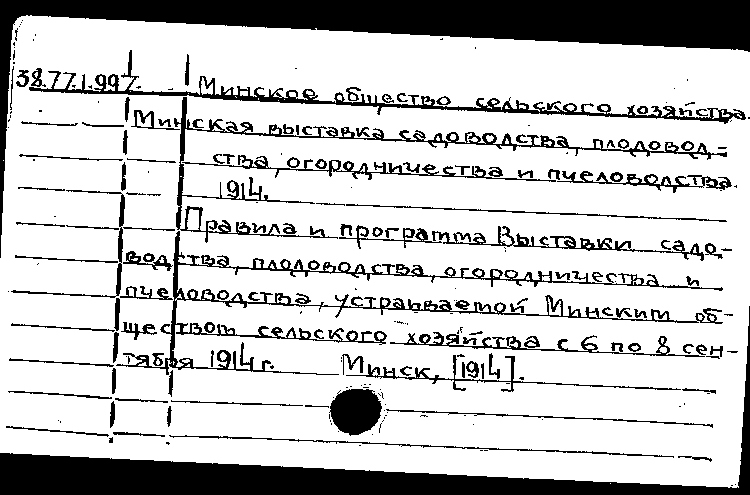 38.77.1.997. Минское общество сельского хозяйства.
Минская выставка садоводства, плодовод-
ства, огородничества и пчеловодства.
1914.
Правила и программа Выставки садо-
водства, плодоводства, огородничества и
пчеловодства, устраиваемой Минским об-
ществом сельского хозяйства с 6 по 8 сен-
тября 1914 г. Минск, [1914].